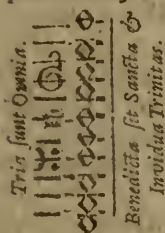 Tria ſunt Omnia.
Benedicta ſit Sancta &
Invidua Trinitas.